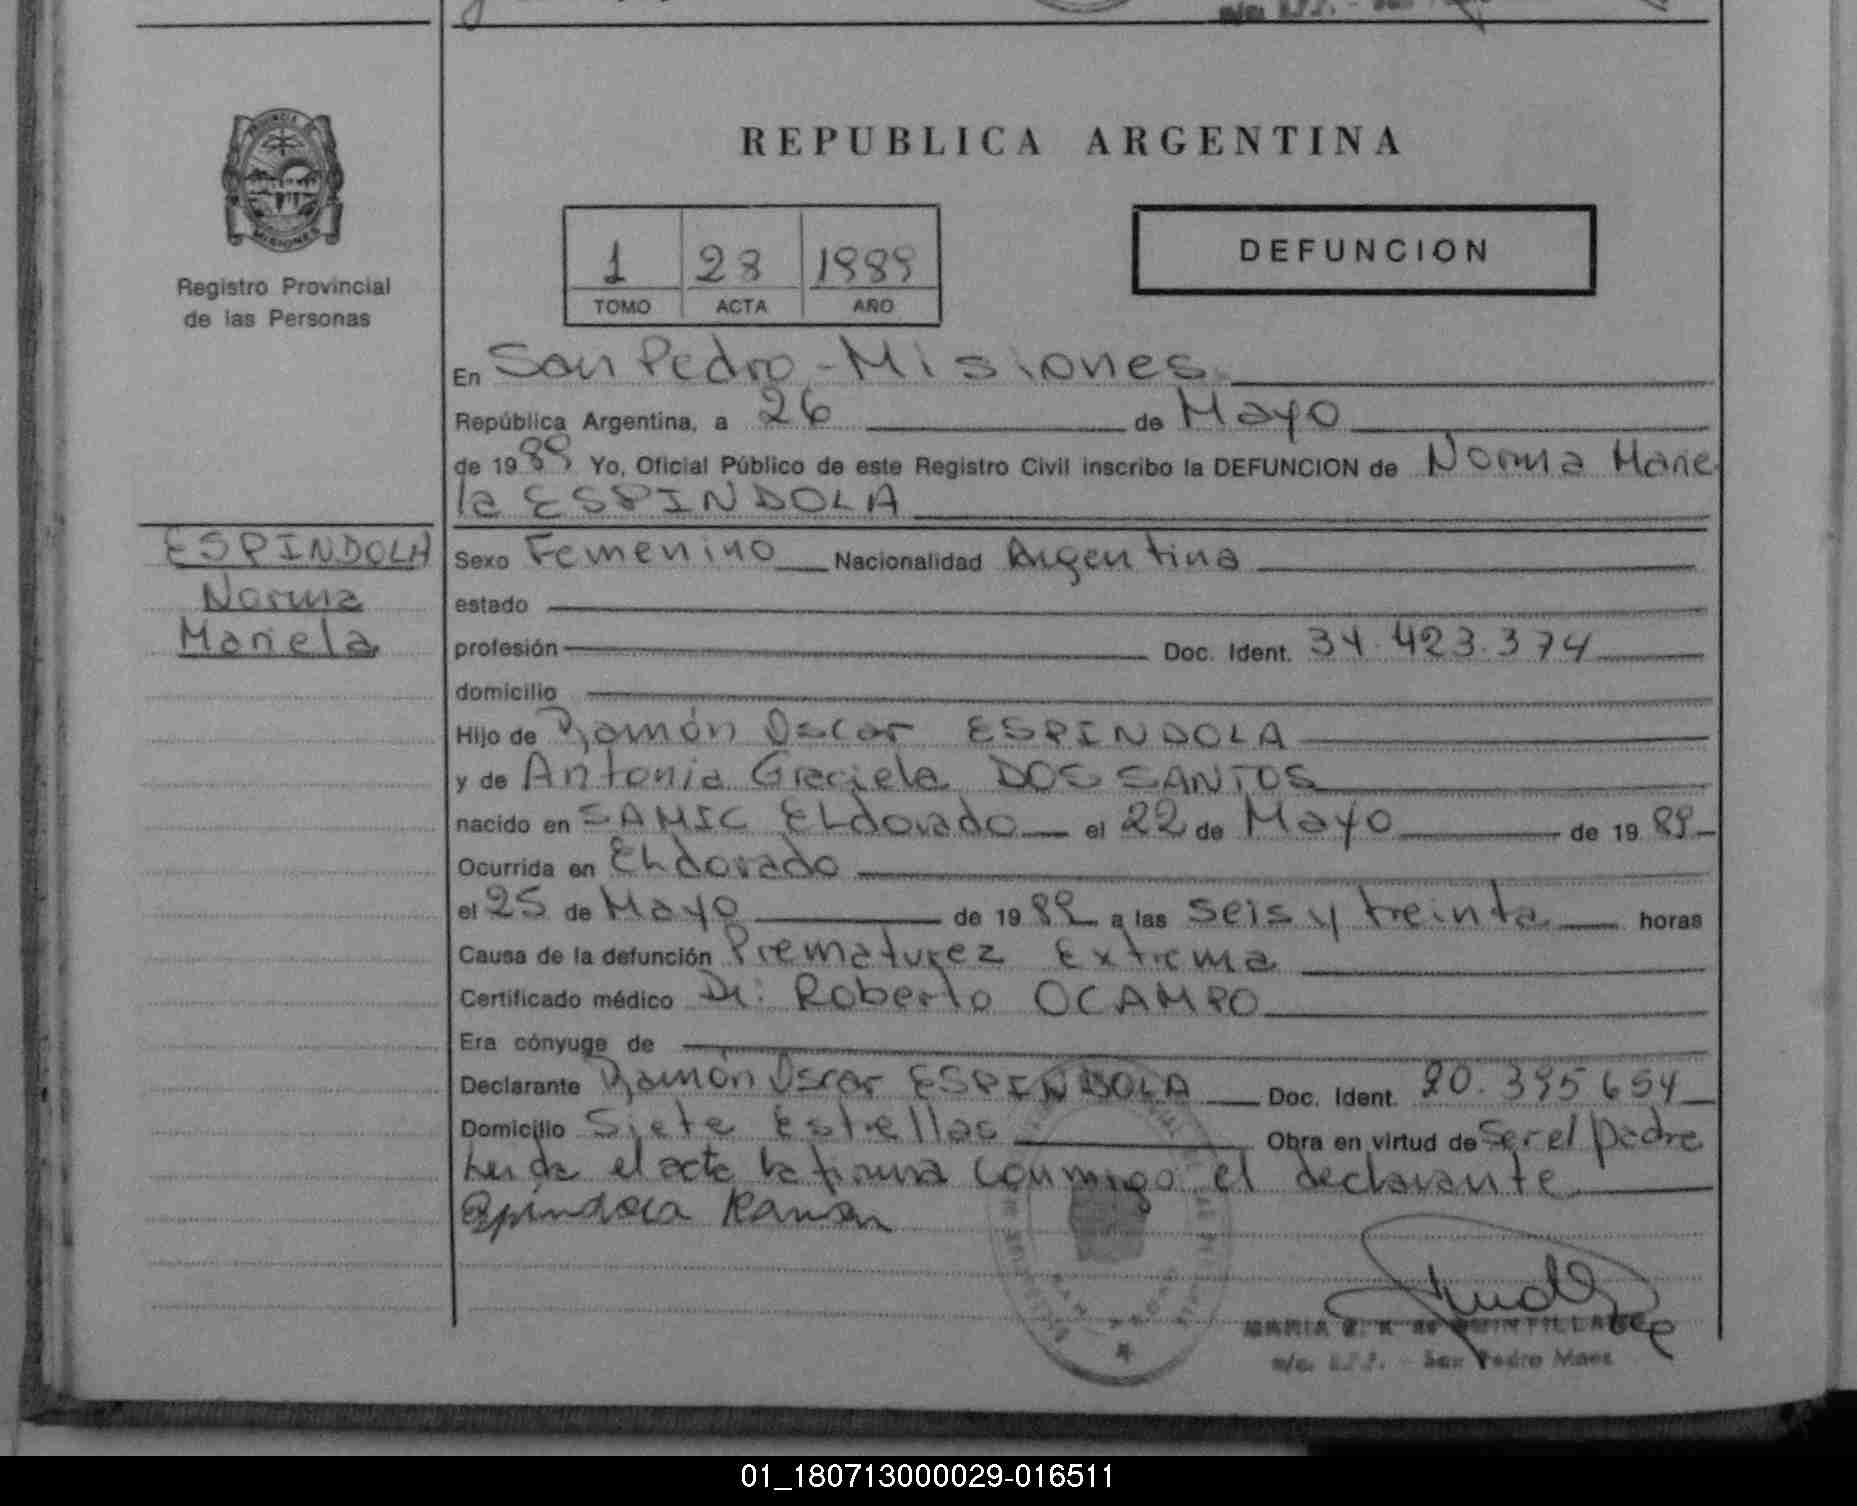 PROVINCIA DE
MISIONES
Registro Provincial
de las Personas
REPUBLICA ARGENTINA
1 28 1989
TOMO ACTA AÑO
DEFUNCION
En San Pedro - Misiones
República Argentina, a 26 de Mayo
de 1989 Yo, Oficial Público de este Registro Civil inscribo la DEFUNCION de Norma Marie
la ESPINDOLA
ESPINDOLA
Norma
Mariela
Sexo Femenino Nacionalidad Argentina
estado
profesión Doc. Ident. 34.423.374
domicilio
Hijo de Ramón Oscar ESPINDOLA
y de Antonia Graciela DOS SANTOS
nacido en SAMIC ELdorado el 22 de Mayo de 1989
Ocurrida en ELdorado
el 25 de Mayo de 1989 a las seis y treinta horas
Causa de la defunción Prematurez Extrema
Certificado médico Dr: Roberto OCAMPO
Era cónyuge de
Declarante Ramón Oscar ESPINDOLA Doc. Ident. 20.395654
Domicilio Siete Estrellas Obra en virtud de ser el padre
Leida el acta la firma conmigo el declarante
Espindola Ramon
MARIA de QUINTILLAN
San Pedro Mnes
01_180713000029-016511